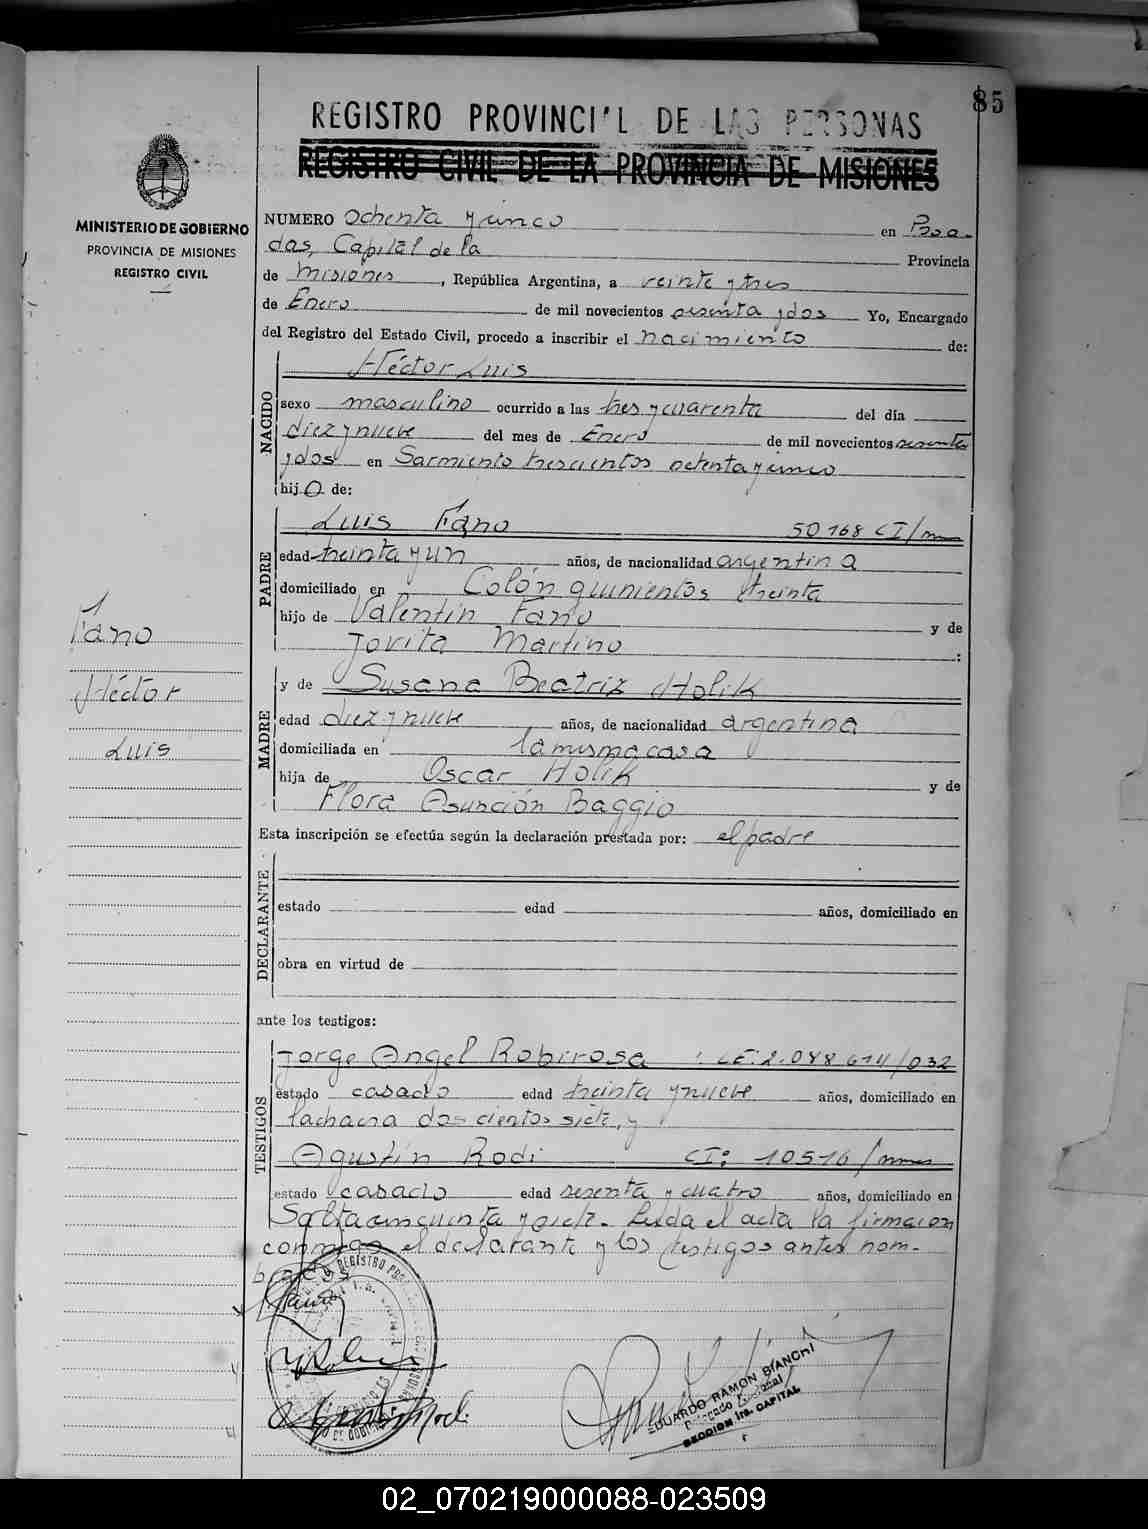 85
REGISTRO PROVINCIAL DE LAS PERSONAS
REGISTRO CIVIL DE LA PROVINCIA DE MISIONES
MINISTERIO DE GOBIERNO
PROVINCIA DE MISIONES
REGISTRO CIVIL
NUMERO Ochenta y cinco en Posa-
das, Capital de la Provincia
de Misiones, República Argentina, a veinte y tres
de Enero de mil novecientos sesenta y dos Yo, Encargado
del Registro del Estado Civil, procedo a inscribir el nacimiento de:
Héctor Luis
NACIDO
sexo masculino ocurrido a las tres y cuarenta del día
diez y nueve del mes de Enero de mil novecientos sesenta
y dos en Sarmiento trescientos ochenta y cinco
hijo de:
Luis Fano 50168 CI/
PADRE
edad treinta y un años, de nacionalidad argentina
domiciliado en Colón quinientos treinta
hijo de Valentín Fano y de
Jovita Martino :
y de Susana Beatriz Holik
MADRE
edad diez y nueve años, de nacionalidad argentina
domiciliada en la misma casa
hija de Oscar Holik y de
Flora Asunción Baggio
Esta inscripción se efectúa según la declaración prestada por: el padre
DECLARANTE
estado edad años, domiciliado en
obra en virtud de
ante los testigos:
TESTIGOS
Jorge Angel Robirosa
estado casado edad treinta y nueve años, domiciliado en
la chacra doscientos siete, y
Agustín Rodi CI: 10516/
estado casado edad sesenta y cuatro años, domiciliado en
Salta cincuenta y siete. Leída el acta la firmaron
conmigo el declarante y los testigos antes nom-
brados
Fano
Héctor
Luis
EDUARDO RAMON BIANCHI
SECCION 1ra. CAPITAL
02_070219000088-023509